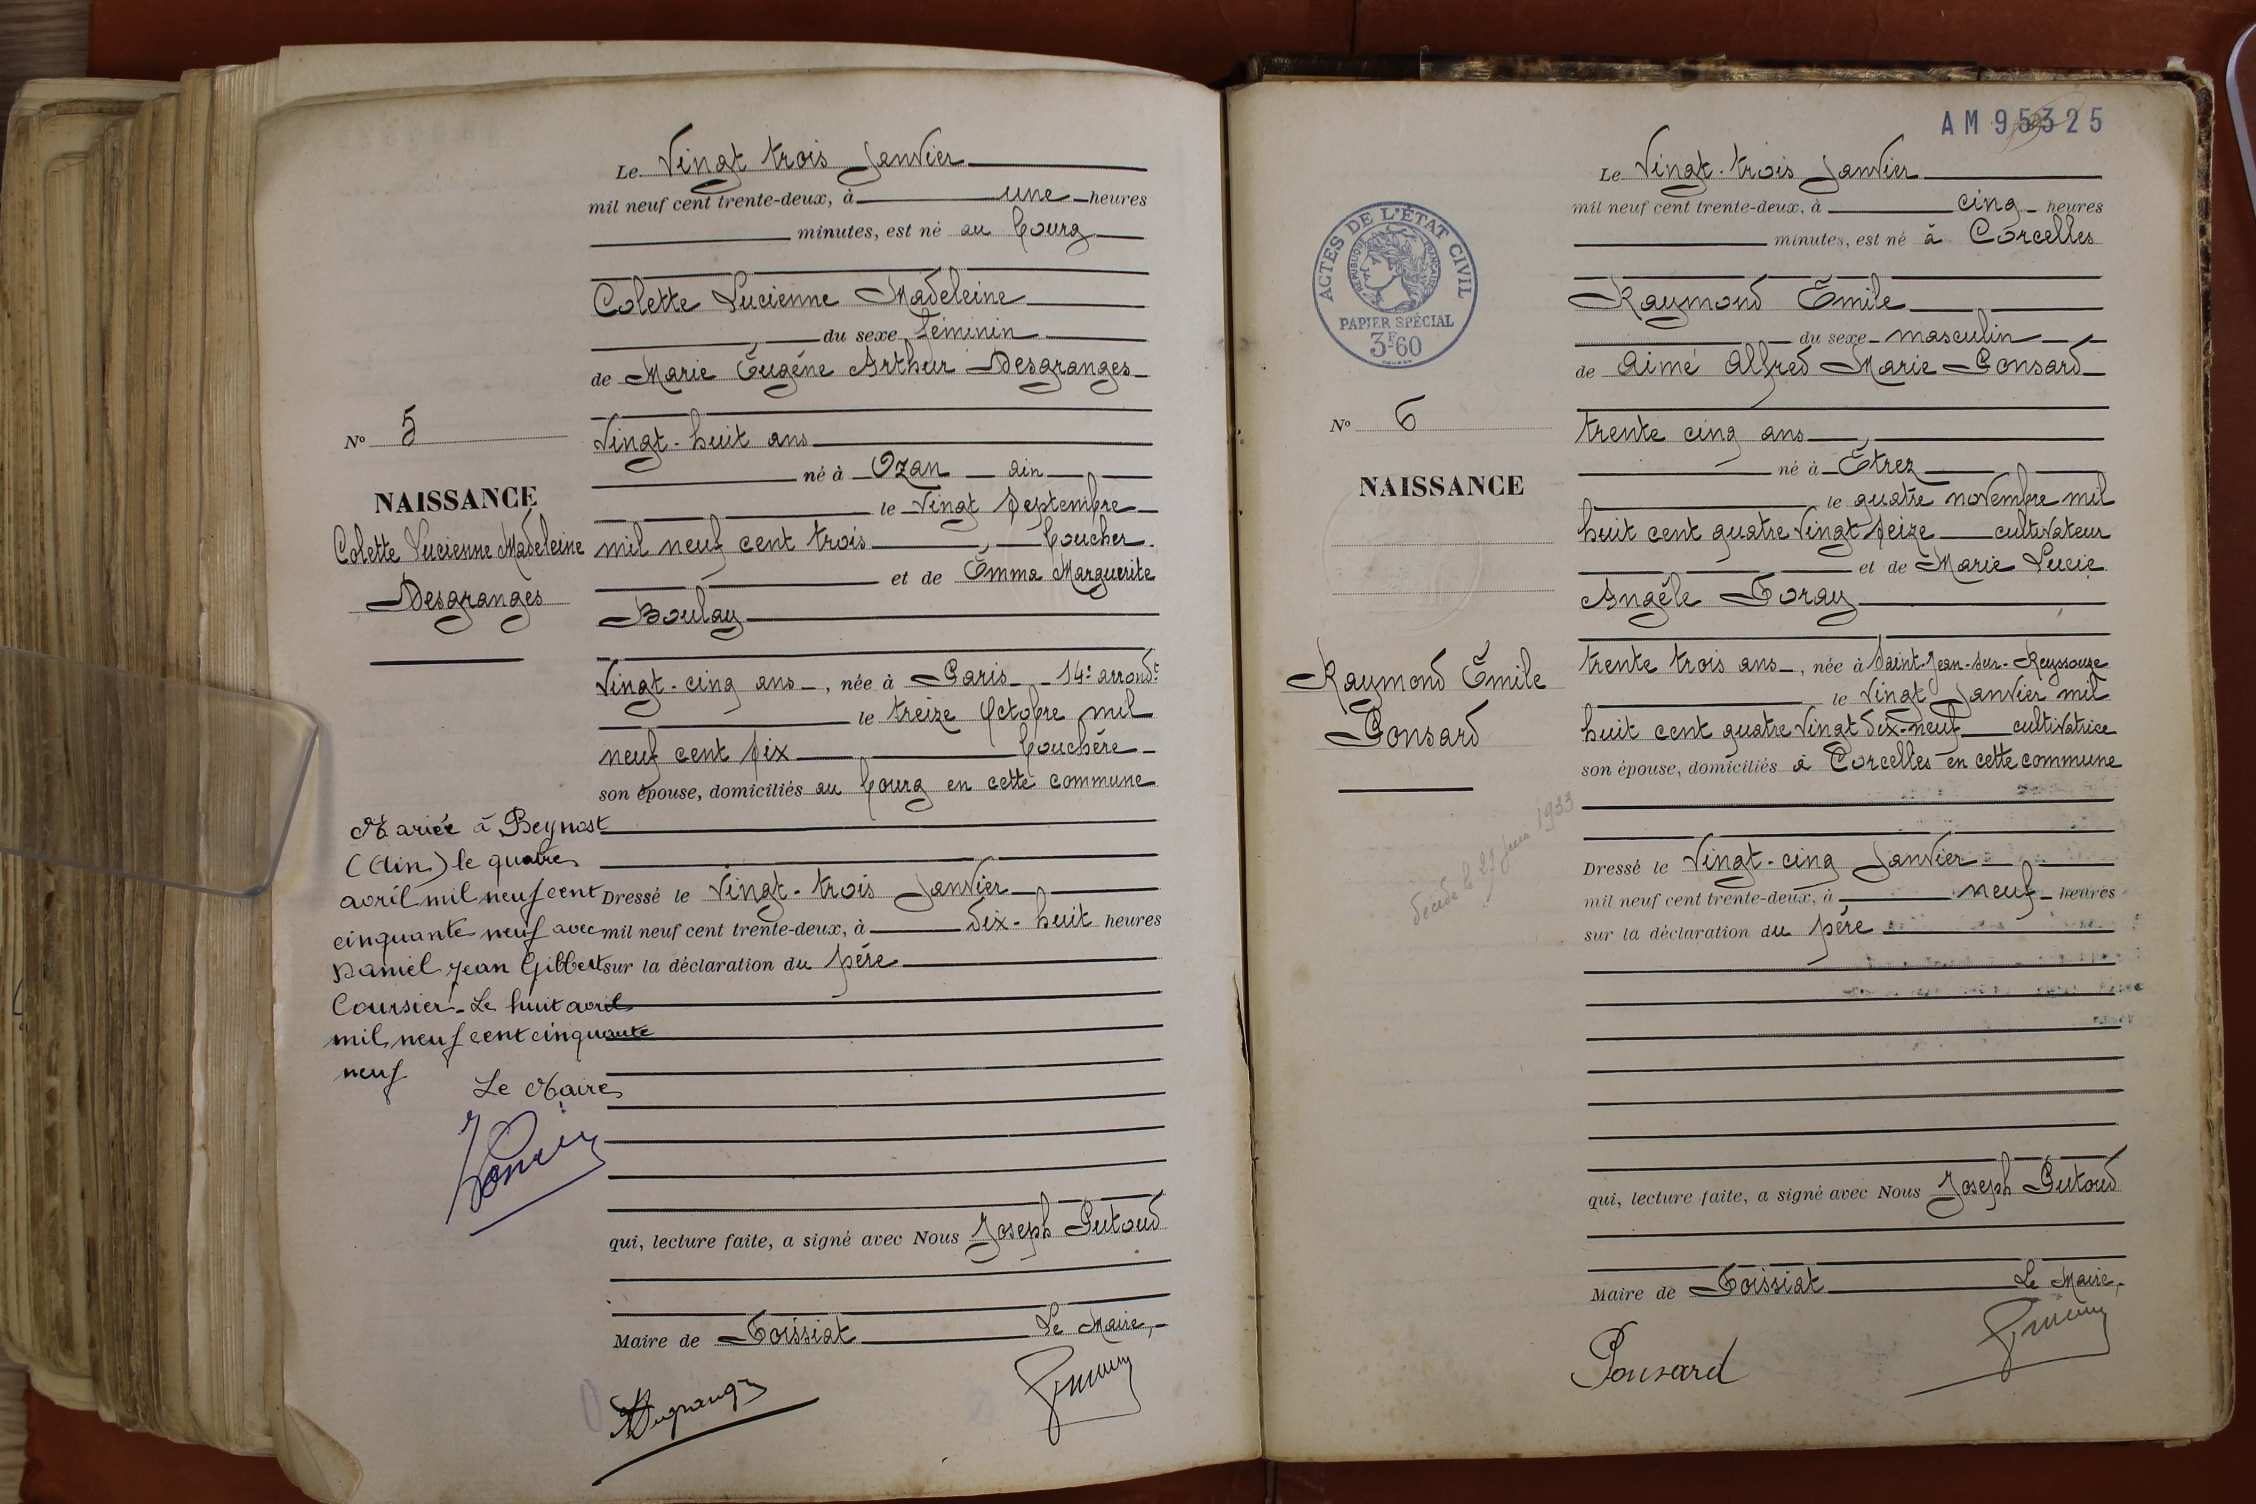 Le Vingt trois Janvier
mil neuf cent trente-deux, à une heures
minutes, est né au bourg
Colette Lucienne Madeleine
du sexe féminin
de Marie Eugéne Arthur Desgranges
Vingt-huit ans
né à Ozan ain
le Vingt Septembre
mil neuf cent trois, boucher
et de Emma Marguerite
Boulay
Vingt-cinq ans, née à Paris 14e arrondt
le treize Octobre mil
neuf cent six bouchére
son épouse, domiciliés au bourg en cette commune
Dressé le Vingt-trois Janvier
mil neuf cent trente-deux, à dix-huit heures
sur la déclaration du pére
qui, lecture faite, a signé avec Nous Joseph Putoud
Maire de Foissiat Le Maire,
Desgranges
No 5
NAISSANCE
Colette Lucienne Madeleine
Desgranges
Mariée à Beynost
(Ain) le quatre
avril mil neuf cent
cinquante neuf avec
Daniel Jean Gilbert
Coursier. Le huit avril
mil neuf cent cinquante
neuf
Le Maire
AM 95325
Le Vingt-trois Janvier
mil neuf cent trente-deux, à cinq heures
minutes, est né à Corcelles
Raymond Emile
du sexe masculin
de Aimé Alfred Marie Ponsard
trente cinq ans
né à Etrez
le quatre novembre mil
huit cent quatre Vingt seize cultivateur
et de Marie Lucie
Angéle Foray
trente trois ans, née à Saint-Jean-sur-Reyssouze
le Vingt Janvier mil
huit cent quatre Vingt dix-neuf cultivatrice
son épouse, domiciliés à Corcelles en cette commune
Dressé le Vingt-cinq Janvier
mil neuf cent trente-deux, à neuf heures
sur la déclaration du pére
qui, lecture faite, a signé avec Nous Joseph Putoud
Maire de Foissiat Le Maire,
Ponsard
ACTES DE L'ÉTAT CIVIL
RÉPUBLIQUE FRANÇAISE
PAPIER SPÉCIAL
3F60
No 6
NAISSANCE
Raymond Emile
Ponsard
décédé le 27 1933